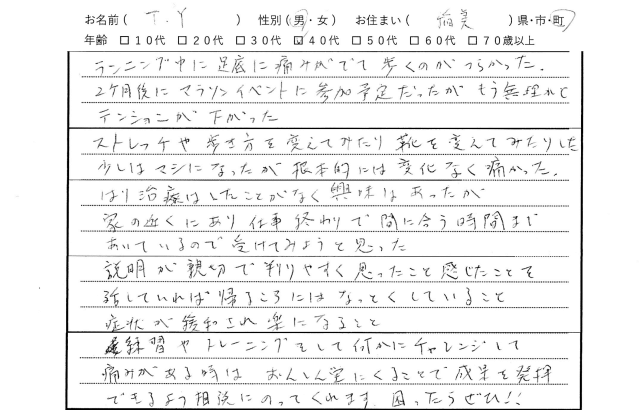 お名前（ T.Y ） 性別（男・女） お住まい（ 稲美 ）県・市・町
年齢 □10代 □20代 □30代 □40代 □50代 □60代 □70歳以上
ランニング中に足底に痛みがでて歩くのがつらかった.
2ヶ月後にマラソンイベントに参加予定だったがもう無理かと
テンションが下がった
ストレッチや歩き方を変えてみたり靴を変えてみたりした
少しはマシになったが根本的には変化なく痛かった.
はり治療はしたことがなく興味はあったが
家の近くにあり仕事終わりで間に合う時間まで
あいているので受けてみようと思った
説明が親切で判りやすく思ったこと感じたことを
話していれば帰るころにはなっとくしていること
症状が緩和され楽になること
練習やトレーニングをして何かにチャレンジして
痛みがある時は おんしん堂にくることで成果を発揮
できるよう相談にのってくれます. 困ったらぜひ!!